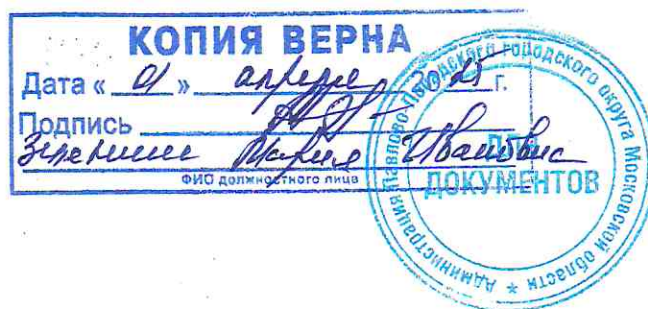 КОПИЯ ВЕРНА
Дата « 01 » апреля 2025 г.
Подпись
Мария Ивановна
ФИО должностного лица
Администрация Павлово-Посадского городского округа Московской области *
ДЛЯ
ДОКУМЕНТОВ